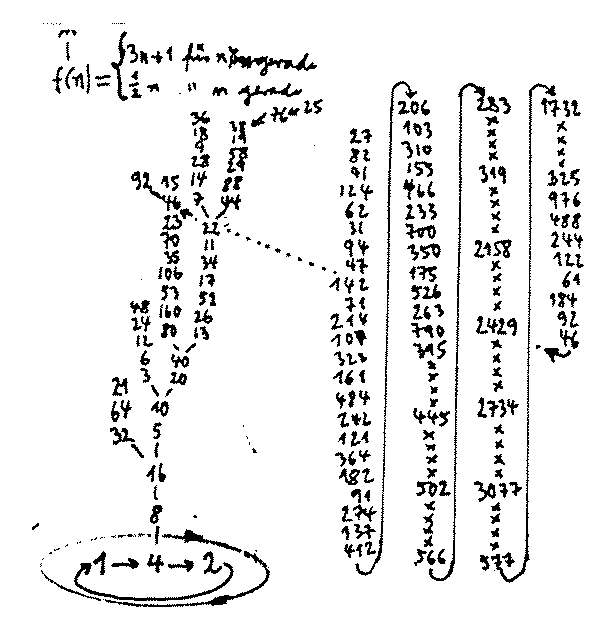 f(n) = { 3n+1 für n ungerade
½ n " n gerade
36
18
9
28
14
7
38 ← 76 ← 25
19
58
29
88
44
92
15
46
23
70
35
106
53
160
80
22
11
34
17
52
26
13
40
20
48
24
12
6
3
10
5
21
64
32
16
8
1 → 4 → 2
27
82
41
124
62
31
94
47
142
71
214
107
322
161
484
242
121
364
182
91
274
137
412
206
103
310
155
466
233
700
350
175
526
263
790
395
x
x
x
x
445
x
x
x
x
502
x
x
x
x
566
283
x
x
x
319
x
x
x
x
2158
x
x
x
x
2429
x
x
x
x
2734
x
x
x
x
3077
x
x
x
x
577
1732
x
x
x
x
325
976
488
244
122
61
184
92
46